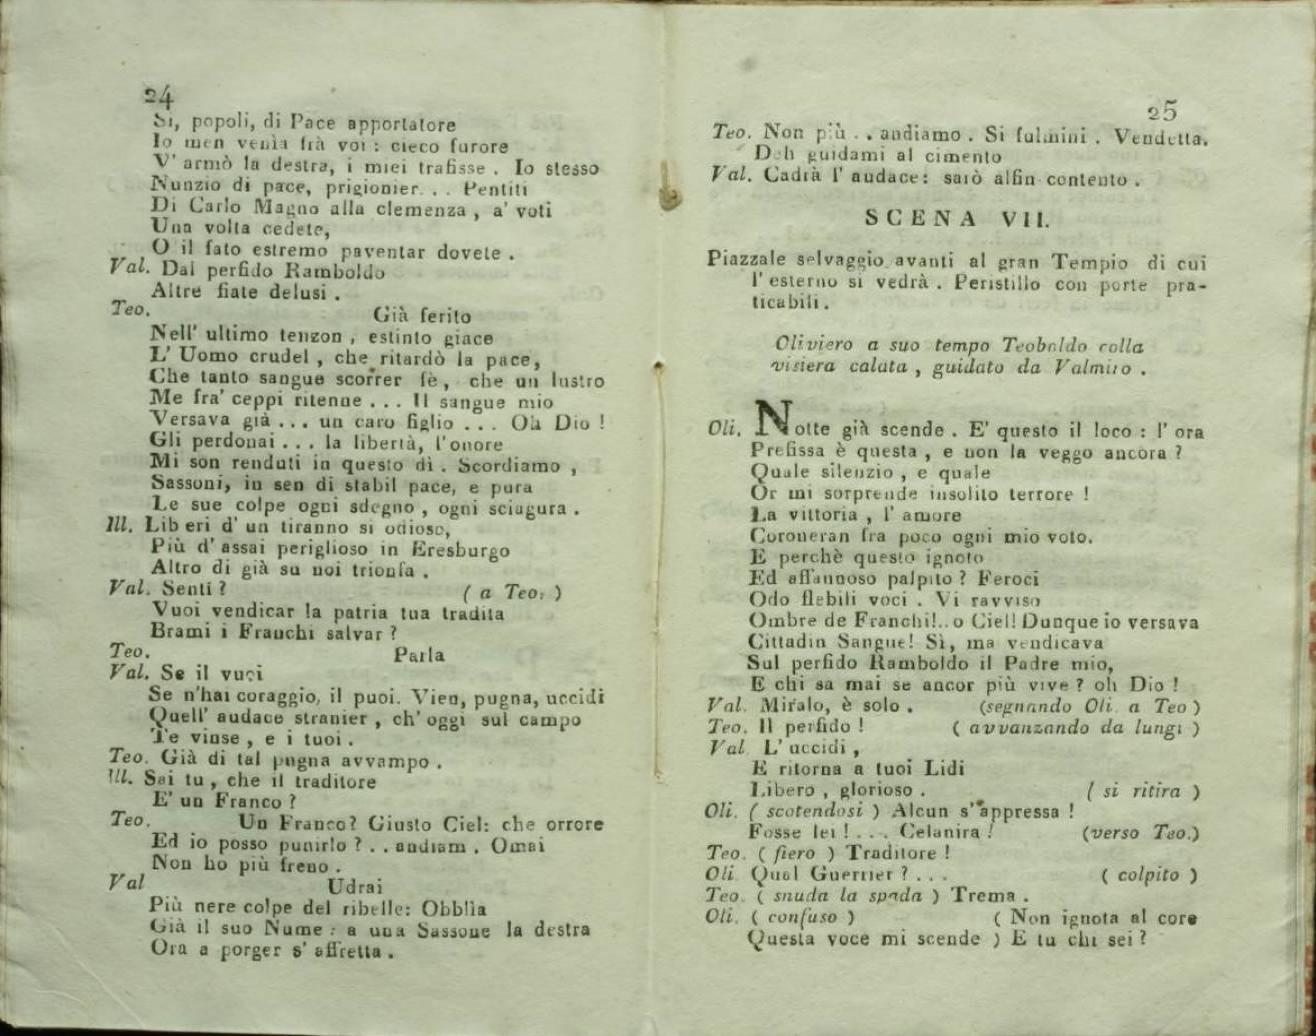 24
Si, popoli, di Pace apportatore
Io men venìa frà voi : cieco furore
V' armò la destra, i miei trafisse . Io stesso
Nunzio di pace, prigionier . . . Pentiti
Di Carlo Magno alla clemenza , a' voti
Una volta cedete,
O il fato estremo paventar dovete .
Val. Dal perfido Ramboldo
Altre fiate delusi .
Teo. Già ferito
Nell' ultimo tenzon , estinto giace
L' Uomo crudel , che ritardò la pace,
Che tanto sangue scorrer fè , che un lustro
Me fra' ceppi ritenne . . . Il sangue mio
Versava già . . . un caro figlio . . . Oh Dio !
Gli perdonai . . . la libertà, l'onore
Mi son renduti in questo dì . Scordiamo ,
Sassoni, in sen di stabil pace, e pura
Le sue colpe ogni sdegno , ogni sciagura .
Ill. Liberi d' un tiranno si odioso,
Più d' assai periglioso in Eresburgo
Altro di già su noi trionfa .
Val. Senti ? ( a Teo. )
Vuoi vendicar la patria tua tradita
Brami i Franchi salvar ?
Teo. Parla
Val. Se il vuoi
Se n'hai coraggio, il puoi. Vien, pugna, uccidi
Quell' audace stranier , ch' oggi sul campo
Te vinse , e i tuoi .
Teo. Già di tal pugna avvampo .
Ill. Sai tu , che il traditore
E' un Franco ?
Teo. Un Franco? Giusto Ciel: che orrore
Ed io posso punirlo ? . . andiam . Omai
Non ho più freno .
Val Udrai
Più nere colpe del ribelle: Obblìa
Già il suo Nume : a una Sassone la destra
Ora a porger s' affretta .
25
Teo. Non più . . andiamo . Si fulmini . Vendetta.
Deh guidami al cimento
Val. Cadrà l' audace: sarò alfin contento .
SCENA VII.
Piazzale selvaggio avanti al gran Tempio di cui
l' esterno si vedrà . Peristilio con porte pra-
ticabili .
Oliviero a suo tempo Teobaldo colla
visiera calata , guidato da Valmiro .
Oli. Notte già scende . E' questo il loco : l' ora
Prefissa è questa , e non la veggo ancora ?
Quale silenzio , e quale
Or mi sorprende insolito terrore !
La vittoria , l' amore
Coroneran fra poco ogni mio voto.
E perchè questo ignoto
Ed affannoso palpito ? Feroci
Odo flebili voci . Vi ravviso
Ombre de Franchi!..o Ciel! Dunque io versava
Cittadin Sangue! Sì, ma vendicava
Sul perfido Ramboldo il Padre mio,
E chi sa mai se ancor più vive ? oh Dio !
Val. Miralo, è solo . (segnando Oli. a Teo )
Teo. Il perfido ! ( avvanzando da lungi )
Val L' uccidi ,
E ritorna a tuoi Lidi
Libero , glorioso . ( si ritira )
Oli. ( scotendosi ) Alcun s' appressa !
Fosse lei ! . . . Celanira ! (verso Teo.)
Teo. ( fiero ) Traditore !
Oli. Qual Guerrier ? . . . ( colpito )
Teo. ( snuda la spada ) Trema .
Oli. ( confuso ) ( Non ignota al core
Questa voce mi scende ) E tu chi sei ?